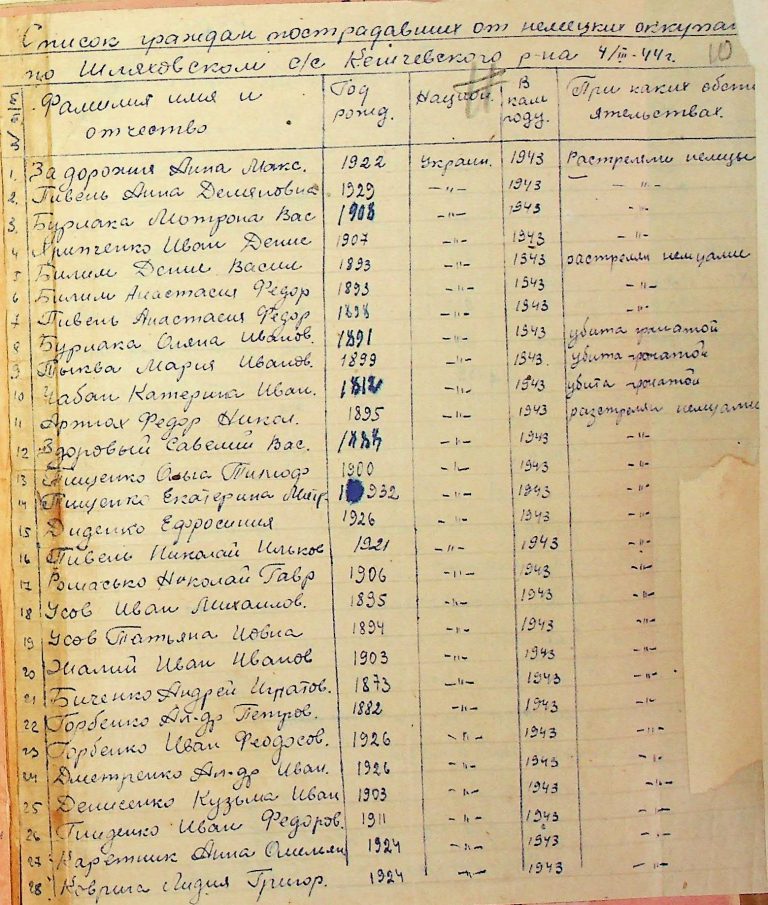 Список граждан пострадавших от немецких оккупан
по Шляховском с/с Кегичевского р-на 4/III-44 г. 10
№ Фамилия имя и отчество Год рожд. Национ. В каком году. При каких обсто ятельствах.
1. Задорожня Анна Макс. 1922 Украин. 1943 Растреляли немцы
2. Пивень Анна Демяновна 1929 -"- 1943 -"-
3. Бурлака Мотрона Вас 1908 -"- 1943 -"-
4 Иван Денис 1907 -"- 1943 -"-
5 Билим Денис Васил 1893 -"- 1943 растрелян немцами
6 Билим Анастасия Федор 1893 -"- 1943 -"-
7 Пивень Анастасия Федор 1898 -"- 1943 -"-
8 Бурлака Оляна Иванов. 1891 -"- 1943 убита гранатой
9 Тыква Мария Иванов. 1899 -"- 1943. убита гранатой
10 Чабан Катерина Иван. -"- 1943 убита гранатой
11 Артюх Федор Никол. 1895 -"- 1943 разстрелян немцами
12 Здоровый Савелий Вас. -"- 1943 -"-
13 Тищенко Ольга Тимоф 1900 -"- 1943 -"-
14 Тищенко Екатерина Митр 1932 -"- 1943 -"-
15 Диденко Ефросиния 1926 -"- 1943 -"-
16 Пивень Николай Ильков 1921 -"- 1943 -"-
17 Ромасько Николай Гавр 1906 -"- 1943 -"-
18 Усов Иван Михаилов. 1895 -"- 1943 -"-
19 Усов Татьяна Иовна 1894 -"- 1943 -"-
20 Жалий Иван Иванов 1903 -"- 1943 -"-
21 Биченко Андрей Игнатов. 1873 -"- 1943 -"-
22 Горбенко Ал-др Петров. 1882 -"- 1943 -"-
23 Горбенко Иван Феодосов. 1926 -"- 1943 -"-
24 Дметренко Ал-др Иван. 1926 -"- 1943 -"-
25 Денисенко Кузьма Иван 1903 -"- 1943 -"-
26 Иван Федоров. 1911 -"- 1943 -"-
27 Каретник Анна Омелян 1924 -"- 1943 -"-
28 Коврига Лидия Григор. 1924 -"- 1943 -"-